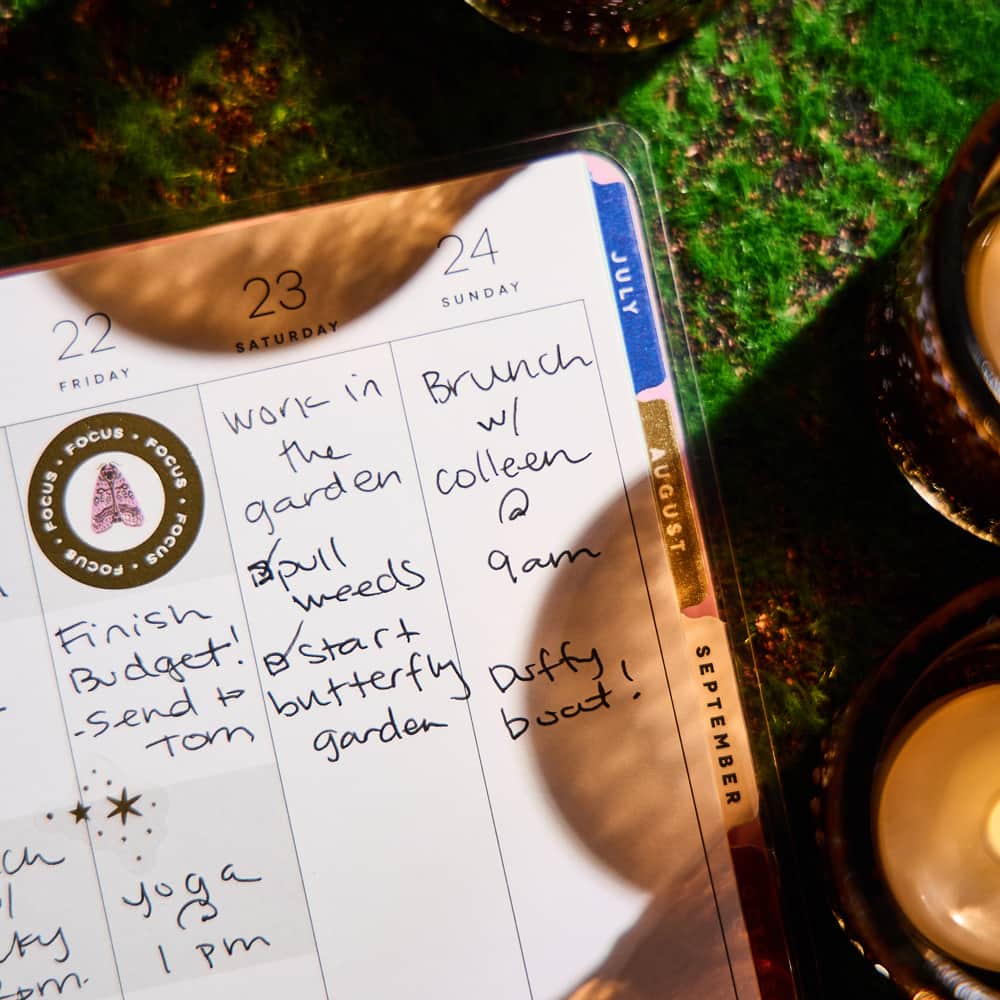 22
FRIDAY
FOCUS • FOCUS • FOCUS • FOCUS • FOCUS • FOCUS • FOCUS •
Finish
Budget!
- Send to
Tom
yoga
@
1 pm
23
SATURDAY
work in
the
garden
pull
weeds
start
butterfly
garden
24
SUNDAY
Brunch
w/
colleen
@
9am
Duffy
boat!
JULY
AUGUST
SEPTEMBER